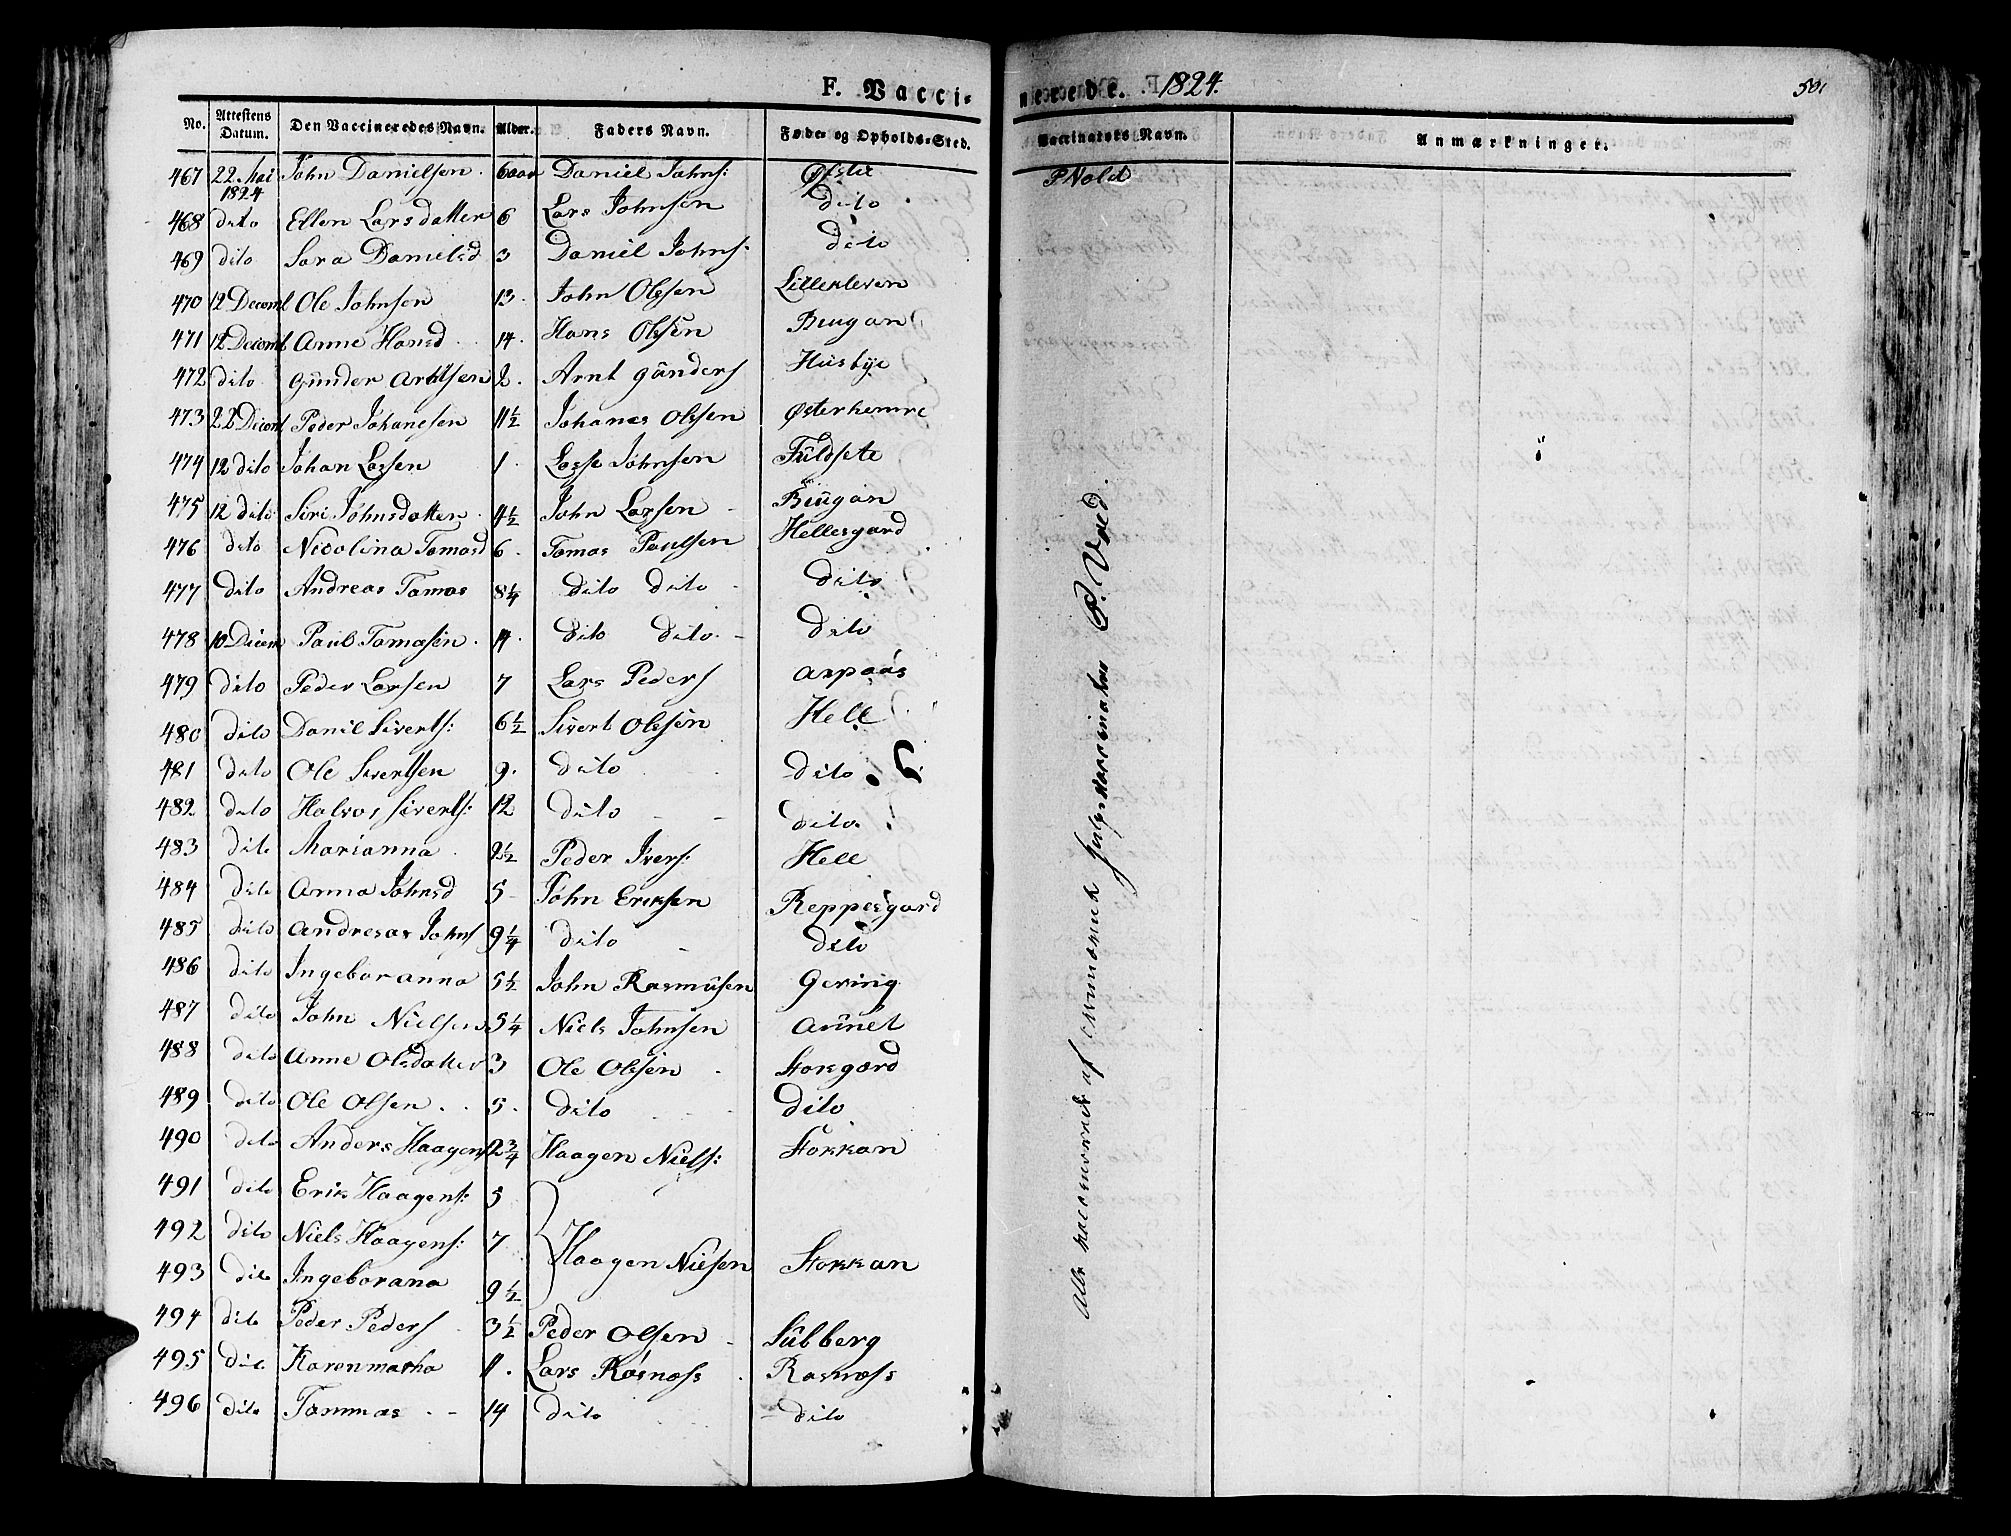 F. Vacci- nerede. 1824. 501
No. Attestens Datum. Den Vaccineredes Navn. Alder. Faders Navn. Føde- og Opholds-Sted. Vaccinateurs Navn. Anmærkninger.
467 22 Mai 1824 John Danielsen 6 aar Daniel Johns: Øfstie P Vold
468 dito Ellen Larsdatter 6 Lars Johnsen dito
469 dito Sara Danielsd 3 Daniel Johns: dito
470 12 Decembr Ole Johnsen 13. John Olssen Lillekleven
471 12 Decemb Anne Hansd 14. Hans Olssen Biugan
472 dito Günder Arntsen 2. Arnt Günders Husbye
473 22 Decemb Peder Johansen 11½ Johanes Olssen Østerkemre
474 12 dito Johan Lassen 1. Lasse Johnsen Fuldsete
475 12 dito Siri Johnsdatter 4½ John Larsen Biugan
476 dito Nicolina Tomasd 6. Tomas Paulsen Hellesgard
477 dito Andreas Tomas 8¼ dito dito dito
478 10 Decem Paul Tomasen 11. dito dito dito
479 dito Peder Larsen 7 Lars Peders Arpaas
480 dito Daniel Siverts: 6½ Sivert Olssen Hell
481 dito Ole Sivertsen 9. dito dito
482 dito Halvor Siverts: 12 dito dito
483 dito Marianna 2½ Peder Ivers: Hell
484 dito Anna Johnsd 5 John Eriksen Reppesgard
485 dito Andreas Johns 9¼ dito dito
486 dito Ingeboranna 5½ John Rasmusen Gering
487 dito John Nielsen 5¼ Niels Johnsen Aunet
488 dito Anne Olsdatter 3 Ole Olssen Storgard
489 dito Ole Olsen 5. dito dito
490 dito Anders Haagens 2¾ Haagen Niels: Stokkan
491 dito Erik Haagens: 5
492 dito Niels Haagens: 7 Haagen Nielsen Stokkan
493 dito Ingeborana 9½
494 dito Peder Peders 3½ Peder Olsen Subberg
495 dito Karenmartha 11. Lars Røsnæss Rasnæss
496 dito Tommas 14 dito dito
Alle vaccineret af Hielpevaccinateur P. Vold.